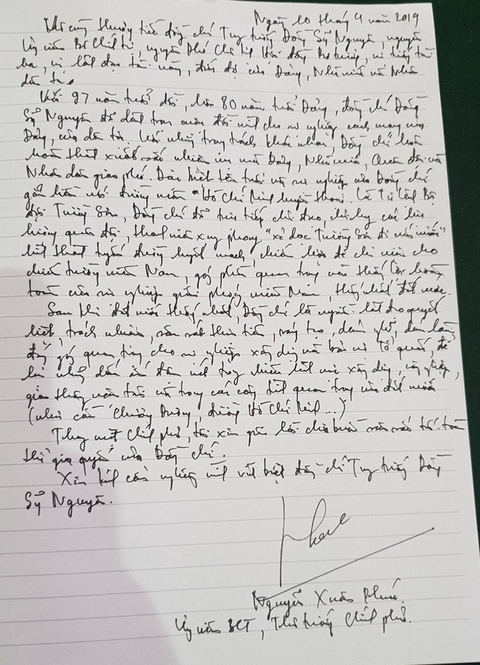 Ngày 10 tháng 4 năm 2019
Vô cùng thương tiếc đồng chí Trung tướng Đồng Sỹ Nguyên, nguyên
Ủy viên Bộ Chính trị, nguyên Phó Chủ tịch Hội đồng Bộ trưởng, vị tướng tài
ba, vị lãnh đạo tài năng, đức độ của Đảng, Nhà nước và Nhân
dân ta.
Với 97 năm tuổi đời, hơn 80 năm tuổi Đảng, đồng chí Đồng
Sỹ Nguyên đã dành trọn cuộc đời mình cho sự nghiệp cách mạng của
Đảng, của dân tộc. Với những trọng trách khác nhau, Đồng chí luôn
hoàn thành xuất sắc nhiệm vụ mà Đảng, Nhà nước, Quân đội và
Nhân dân giao phó. Đặc biệt tên tuổi và sự nghiệp của Đồng chí
gắn liền với đường mòn "Hồ Chí Minh huyền thoại. Là Tư lệnh Bộ
đội Trường Sơn, Đồng chí đã trực tiếp chỉ đạo, chỉ huy các lực
lượng quân đội, thanh niên xung phong "xẻ dọc Trường Sơn đi cứu nước"
tuyến đường huyết mạch, chiến lược để chi viện cho
chiến trường miền Nam, góp phần quan trọng vào thắng lợi hoàn
toàn của sự nghiệp giải phóng miền Nam, thống nhất đất nước.
Sau khi đất nước thống nhất, Đồng chí là người lãnh đạo quyết
liệt, trách nhiệm, sâu sát thực tiễn, sáng tạo, dám nghĩ, dám làm,
đóng góp quan trọng cho sự nghiệp xây dựng và bảo vệ Tổ quốc, để
lại những dấu ấn đậm nét trong nhiều lĩnh vực xây dựng, công nghiệp,
giao thông vận tải và trong các công trình quan trọng của đất nước
(như cầu Chương Dương, đường Hồ Chí Minh...)
Thay mặt Chính phủ, tôi xin gửi lời chia buồn sâu sắc tới toàn
thể gia quyến của Đồng chí.
Xin kính cẩn nghiêng mình vĩnh biệt đồng chí Trung tướng Đồng
Sỹ Nguyên.
Nguyễn Xuân Phúc.
Ủy viên BCT, Thủ tướng Chính phủ.